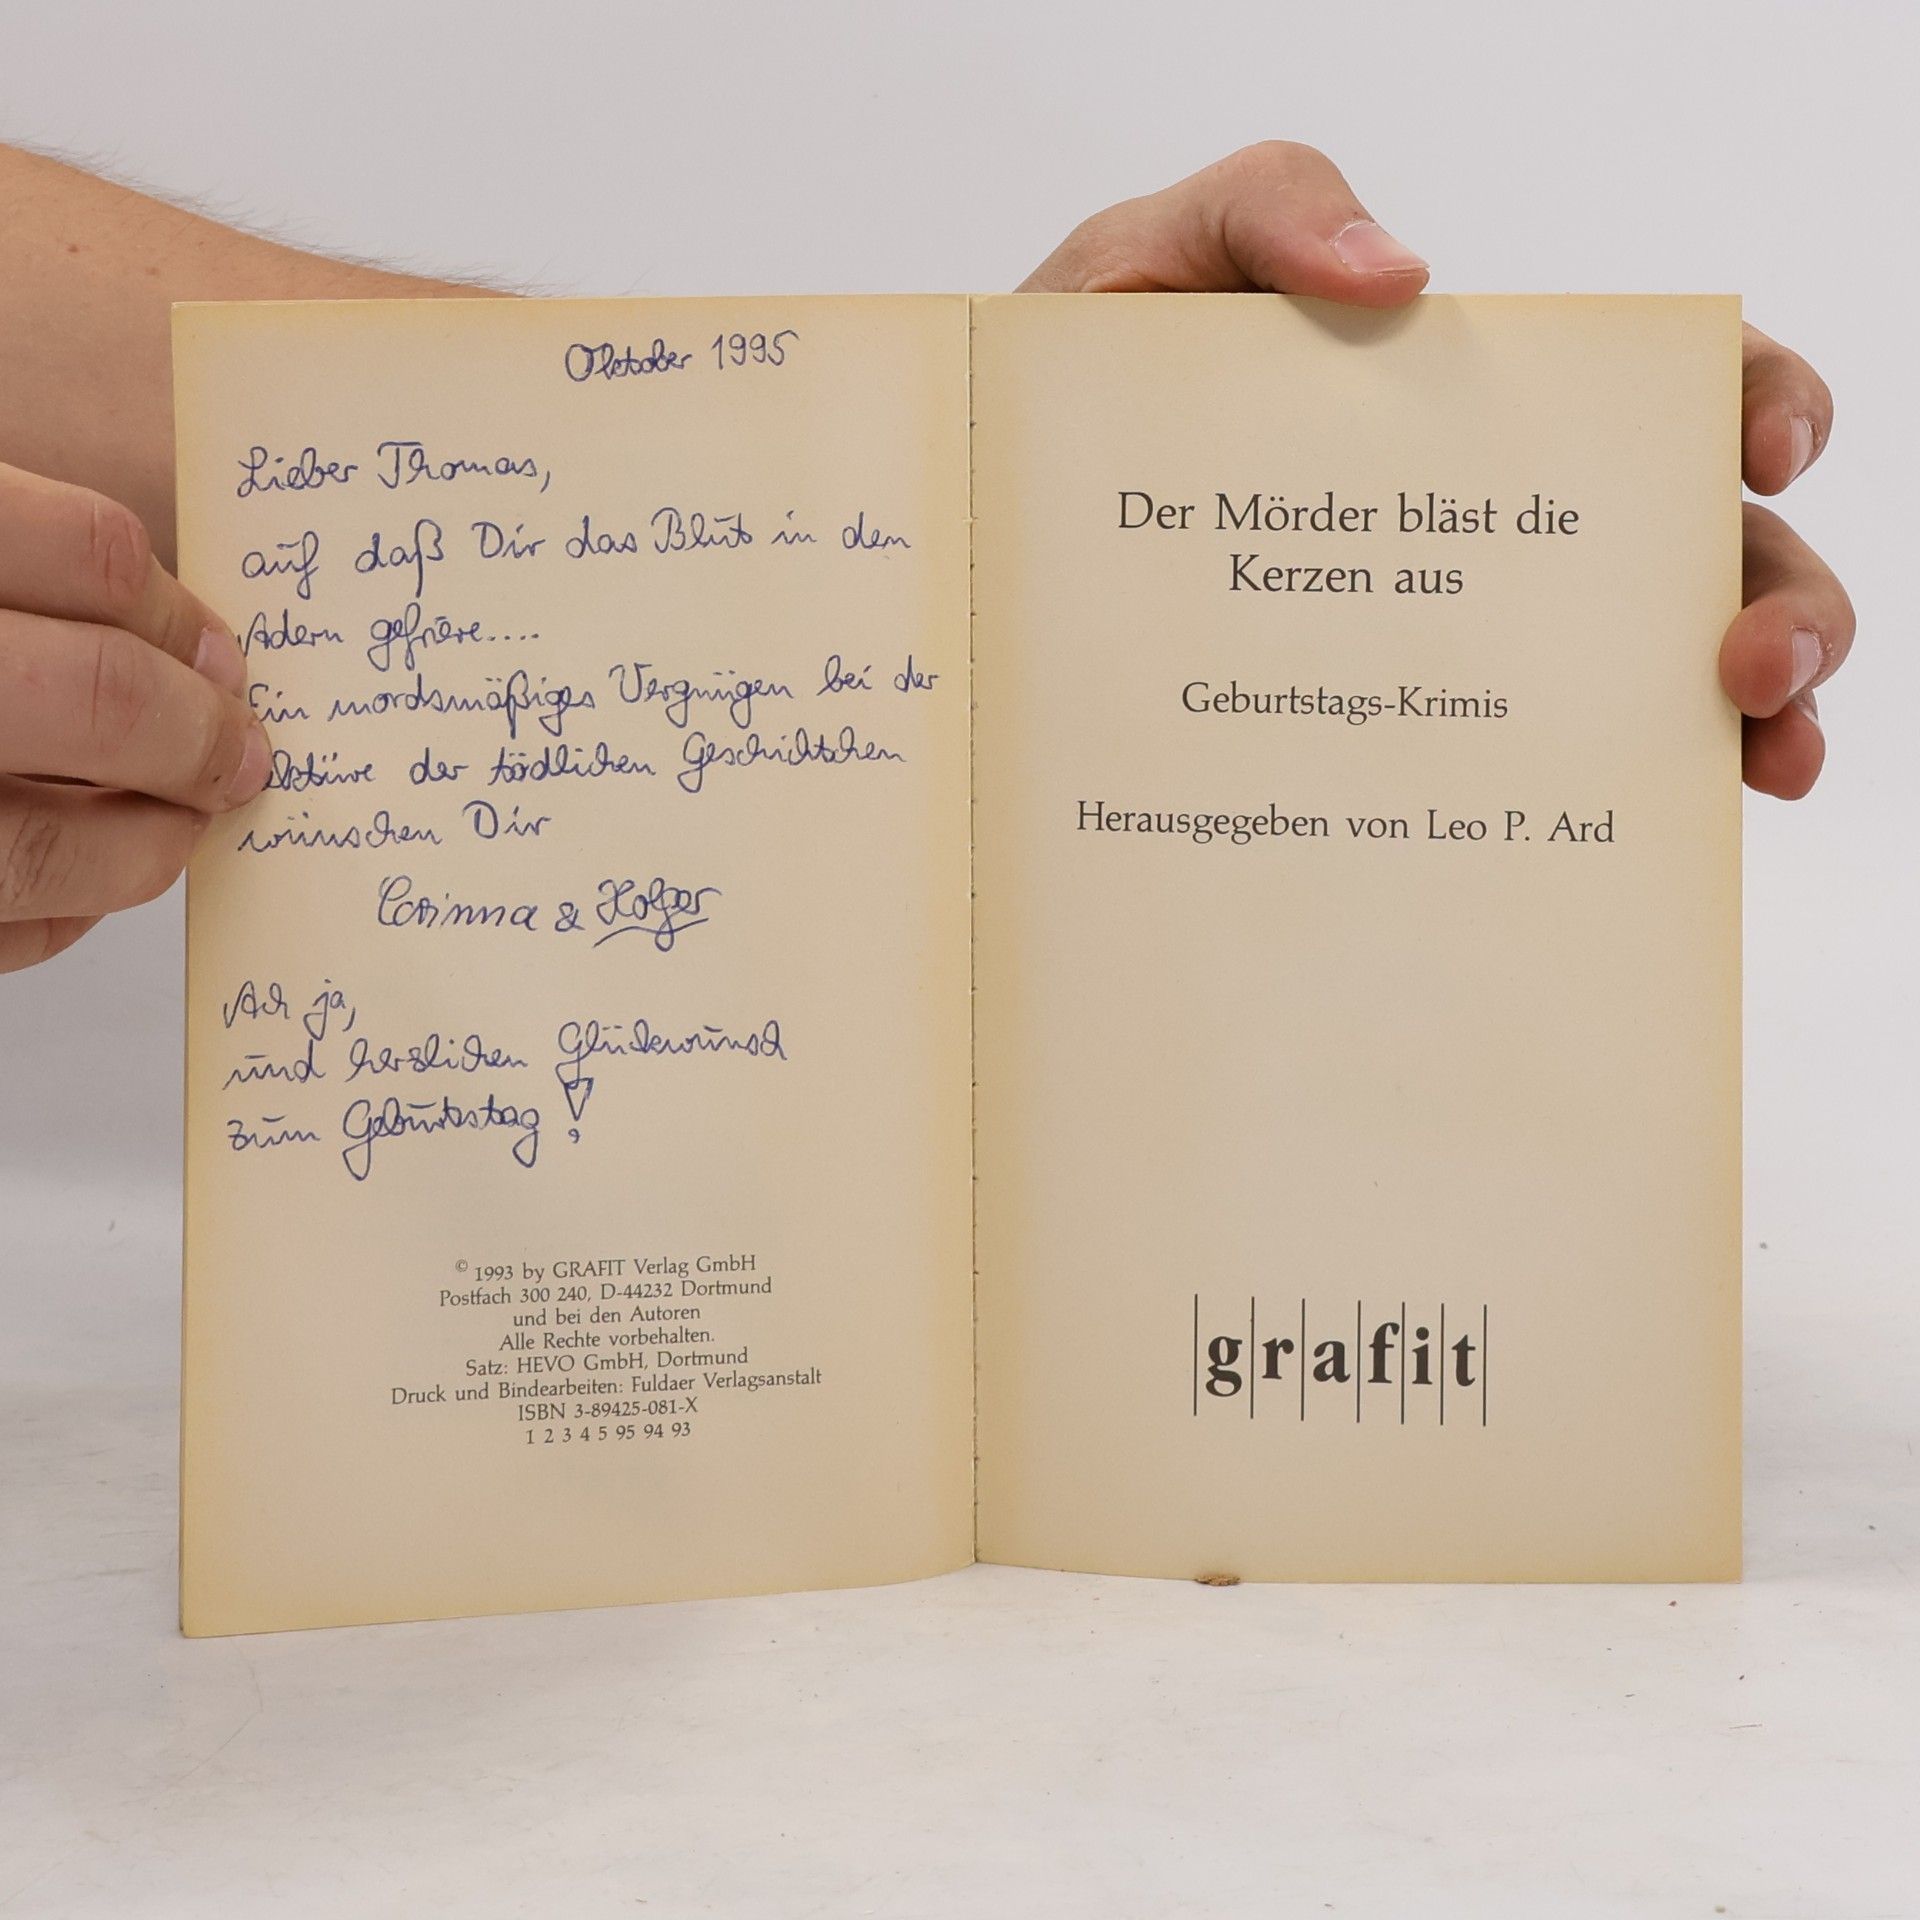 Oktober 1995
Lieber Thomas,
auf daß Dir das Blut in den
Adern gefriere....
Ein mordsmäßiges Vergnügen bei der
ektüre der tödlichen Geschichtchen
wünschen Dir
Corinna & Holger
Ach ja,
und herzlichen Glückwunsch
zum Geburtstag!
© 1993 by GRAFIT Verlag GmbH
Postfach 300 240, D-44232 Dortmund
und bei den Autoren
Alle Rechte vorbehalten.
Satz: HEVO GmbH, Dortmund
Druck und Bindearbeiten: Fuldaer Verlagsanstalt
ISBN 3-89425-081-X
1 2 3 4 5 95 94 93
Der Mörder bläst die
Kerzen aus
Geburtstags-Krimis
Herausgegeben von Leo P. Ard
grafit